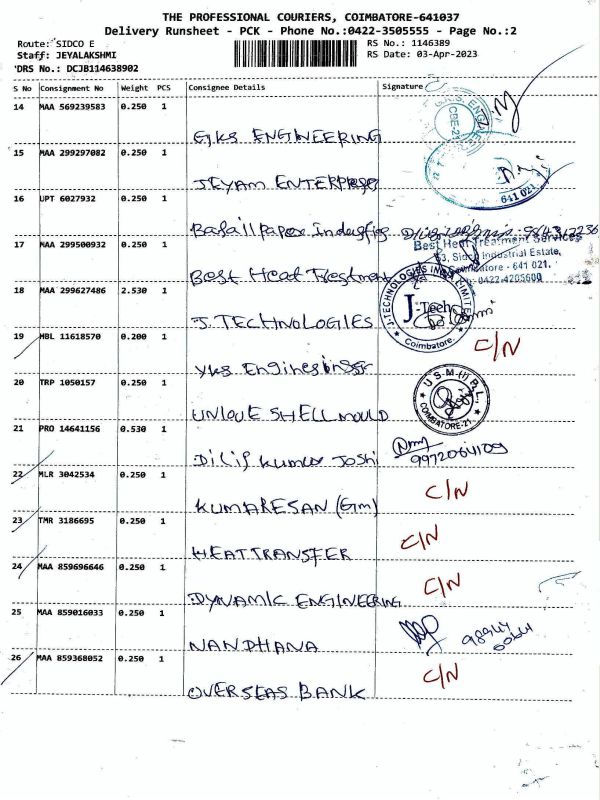 THE PROFESSIONAL COURIERS, COIMBATORE-641037
Delivery Runsheet - PCK - Phone No.:0422-3505555 - Page No.:2
Route: SIDCO E
RS No.: 1146389
Staff: JEYALAKSHMI
RS Date: 03-Apr-2023
DRS No.: DCJB114638902
S No Consignment No Weight PCS Consignee Details Signature
14 MAA 569239583 0.250 1
GKS ENGINEERING
CBE-21
15 MAA 299297082 0.250 1
JEYAM ENTERPRISES
641 021
16 UPT 6027932 0.250 1
17 MAA 299500932 0.250 1
Best Heat Treatment
Best Heat Treatment Services
53, Sidco Industrial Estate,
Coimbatore - 641 021.
0422-4205600
18 MAA 299627486 2.530 1
J. TECHNOLOGIES
J. TECHNOLOGIES INDIA LIMITED
J-Tech
Coimbatore.
19 HBL 11618570 0.200 1
C/N
YKS Engineering
20 TRP 1050157 0.250 1
UNIQUE SHELL MOULD
U S M (I) P L
COIMBATORE-21
21 PRO 14641156 0.530 1
Dilip Kumar Joshi
9972064109
22 MLR 3042534 0.250 1
C/N
KUMARESAN (GM)
23 TMR 3186695 0.250 1
C/N
HEAT TRANSFER
24 MAA 859696646 0.250 1
C/N
DYNAMIC ENGINEERING
25 MAA 859016033 0.250 1
NANDHANA
26 MAA 859368052 0.250 1
C/N
OVERSEAS BANK